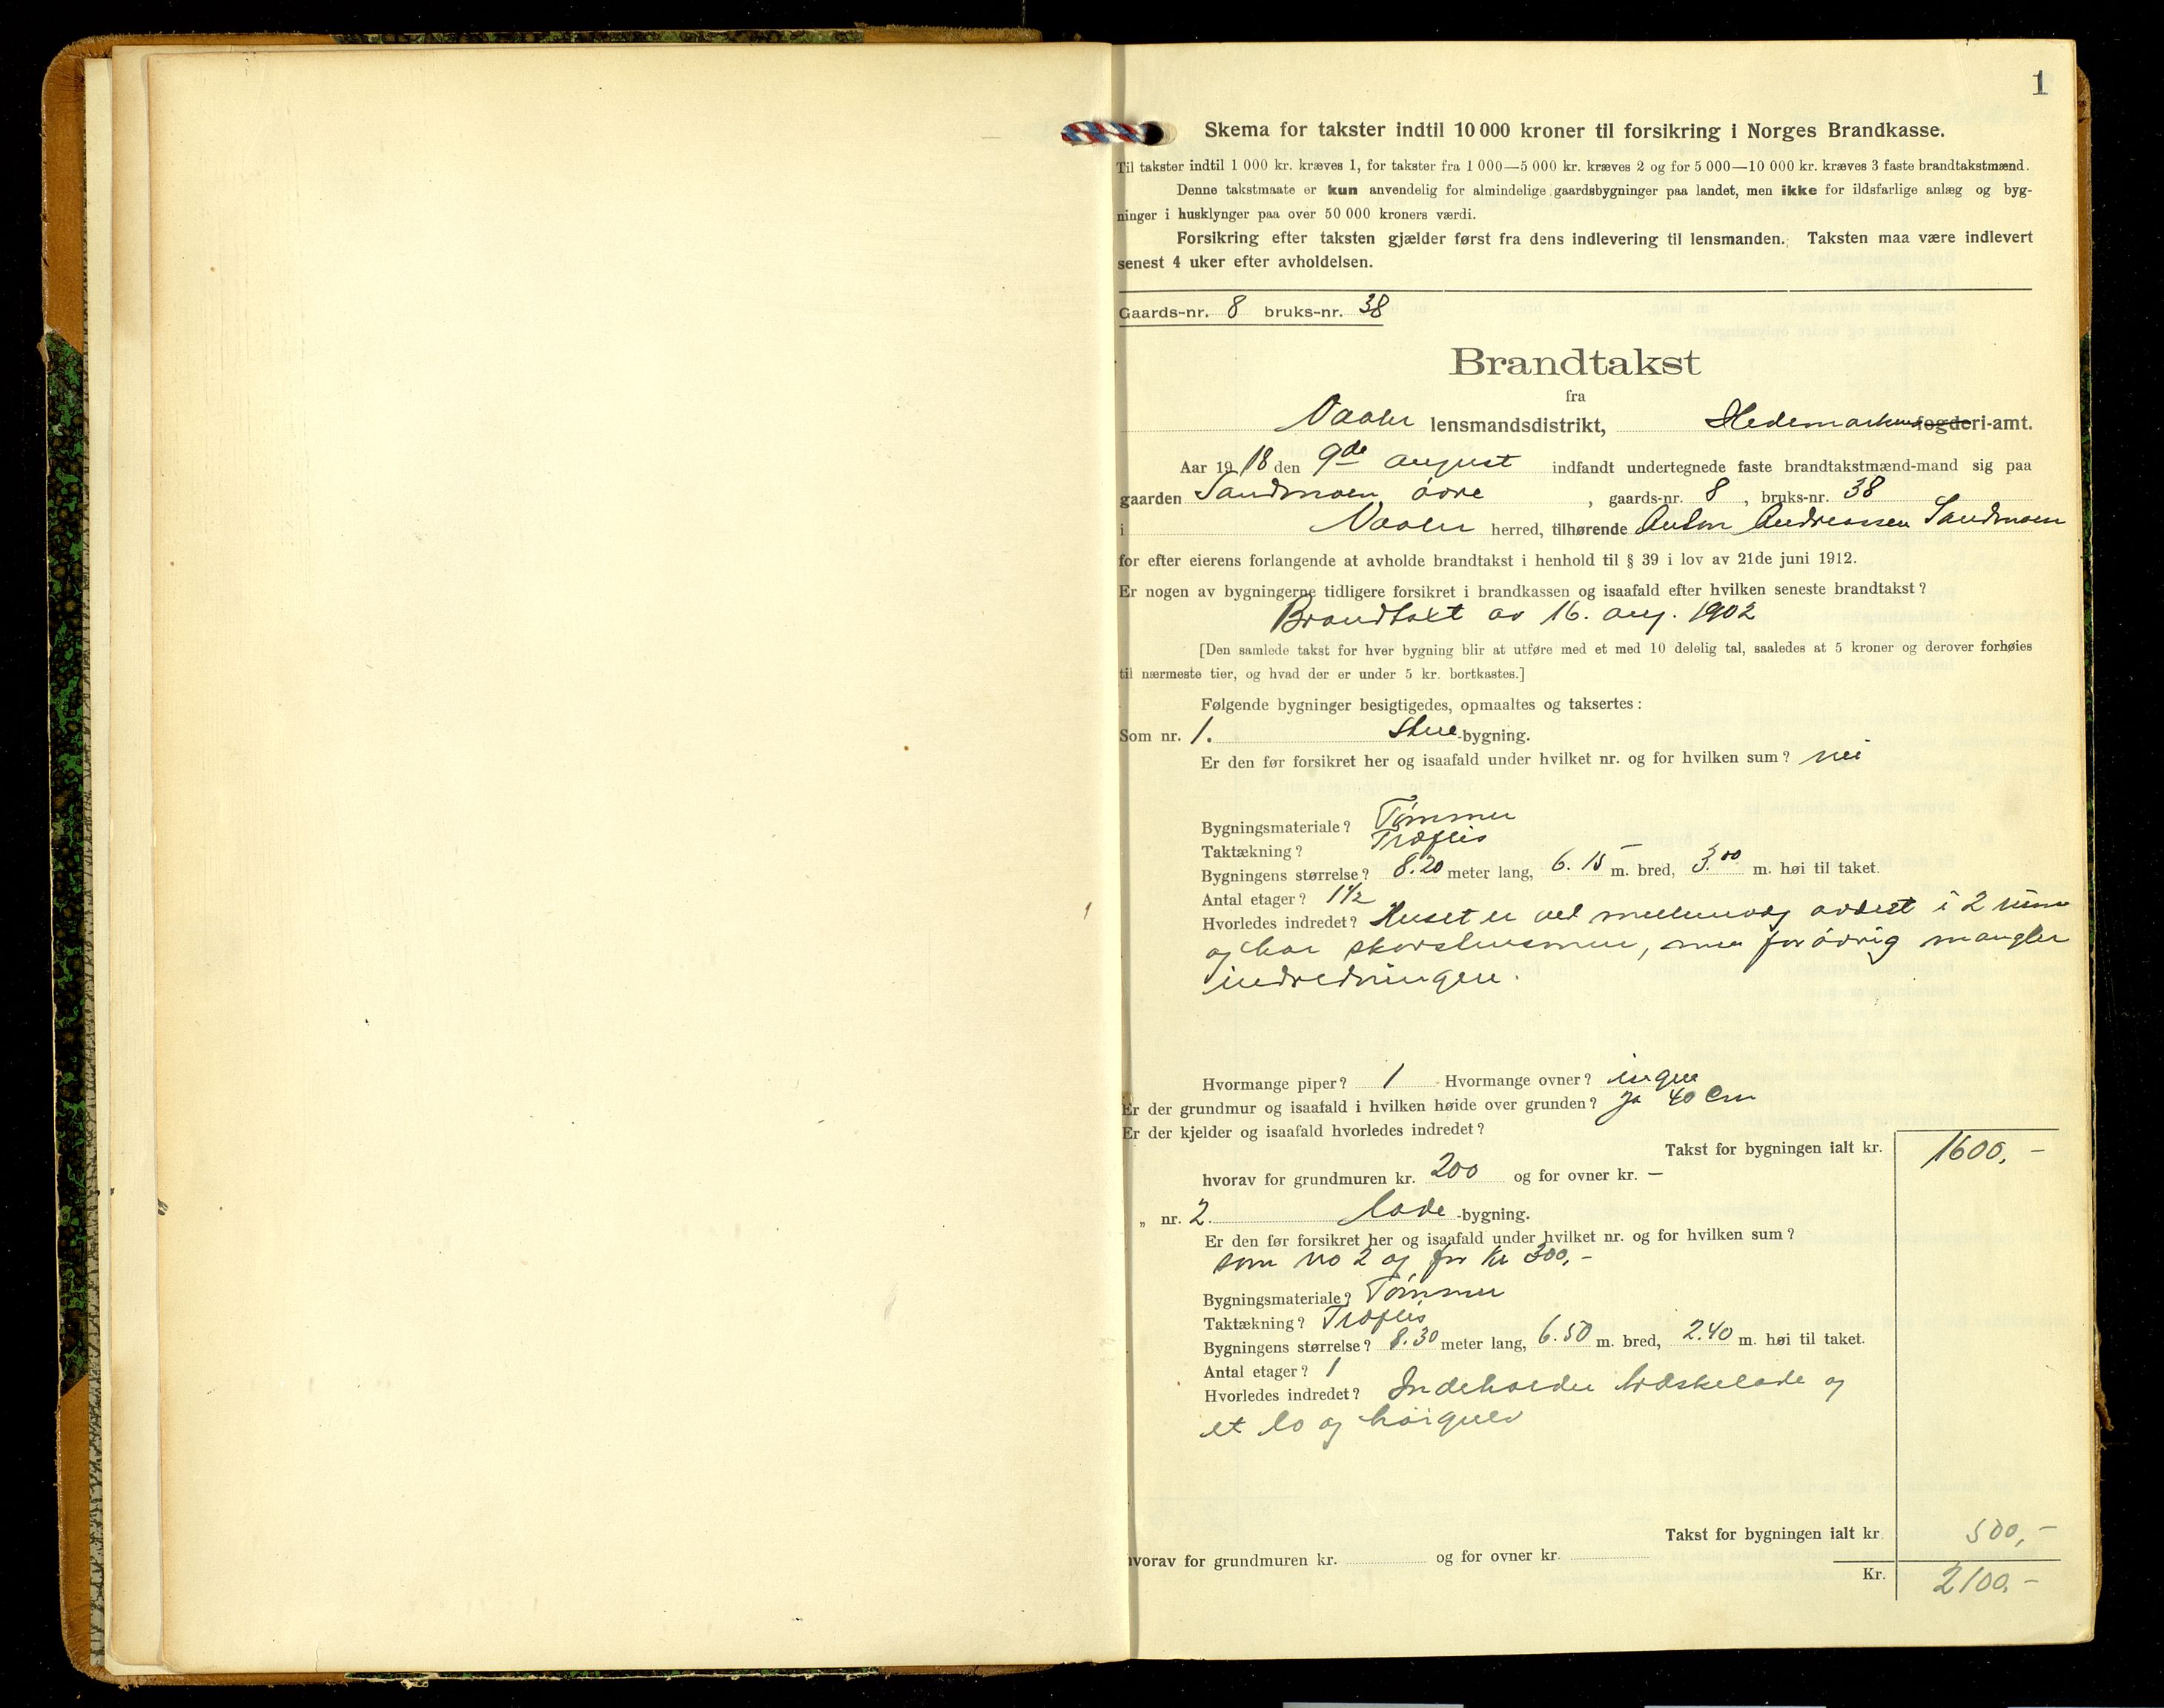 1
Skema for takster indtil 10 000 kroner til forsikring i Norges Brandkasse.
Til takster indtil 1 000 kr. kræves 1, for takster fra 1 000—5 000 kr. kræves 2 og for 5 000—10 000 kr. kræves 3 faste brandtakstmænd.
Denne takstmaate er kun anvendelig for almindelige gaardsbygninger paa landet, men ikke for ildsfarlige anlæg og byg-
ninger i husklynger paa over 50 000 kroners værdi.
Forsikring efter taksten gjælder først fra dens indlevering til lensmanden. Taksten maa være indlevert
senest 4 uker efter avholdelsen.
Gaards-nr. 8 bruks-nr. 38
Brandtakst
fra
Vaaler lensmandsdistrikt, Hedemarkens fogderi-amt.
Aar 1918 den 9de august indfandt undertegnede faste brandtakstmænd-mand sig paa
gaarden Sandmoen øvre, gaards-nr. 8, bruks-nr. 38
i Vaaler herred, tilhørende Anton Andreassen Sandmoen
for efter eierens forlangende at avholde brandtakst i henhold til § 39 i lov av 21de juni 1912.
Er nogen av bygningerne tidligere forsikret i brandkassen og isaafald efter hvilken seneste brandtakst?
Brandtaxt av 16. aug. 1902
[Den samlede takst for hver bygning blir at utføre med et med 10 delelig tal, saaledes at 5 kroner og derover forhøies
til nærmeste tier, og hvad der er under 5 kr. bortkastes.]
Følgende bygninger besigtigedes, opmaaltes og taksertes:
Som nr. 1. Stue-bygning.
Er den før forsikret her og isaafald under hvilket nr. og for hvilken sum? nei
Bygningsmateriale? Tømmer
Taktækning? Træflis
Bygningens størrelse? 8.20 meter lang, 6.15 m. bred, 3.00 m. høi til taket.
Antal etager? 1½
Hvorledes indredet? Huset er ved mellemvæg avdelt i 2 rum
og har skorstensmur, men forøvrig mangler
indredningen.
Hvormange piper? 1 Hvormange ovner? ingen
Er der grundmur og isaafald i hvilken høide over grunden? Ja 40 Cm
Er der kjelder og isaafald hvorledes indredet?
Takst for bygningen ialt kr. 1600,-
hvorav for grundmuren kr. 200 og for ovner kr. —
„ nr. 2. Lade-bygning.
Er den før forsikret her og isaafald under hvilket nr. og for hvilken sum?
som no 2 og for Kr 300,-
Bygningsmateriale? Tømmer
Taktækning? Træflis
Bygningens størrelse? 8.30 meter lang, 6.50 m. bred, 2.40 m. høi til taket.
Antal etager? 1
Hvorledes indredet? Indeholder træskelade og
et lo og høigulv
Takst for bygningen ialt kr 500,-
hvorav for grundmuren kr. og for ovner kr.
Kr. 2100,-